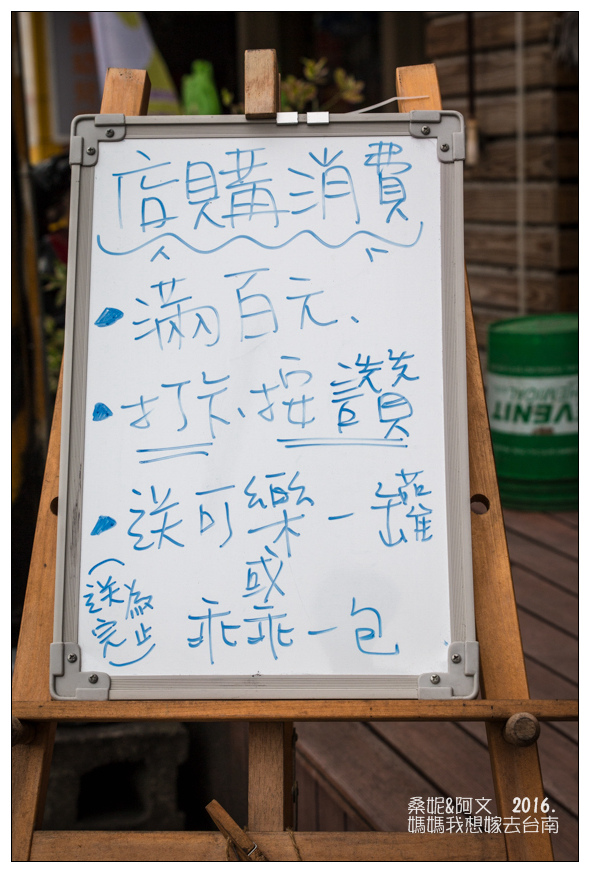 店購消費
滿百元、
打卡、按讚
送可樂一罐
或
乖乖一包
(送完為止)
VENIT
桑妮&阿文 2016.
媽媽我想嫁去台南